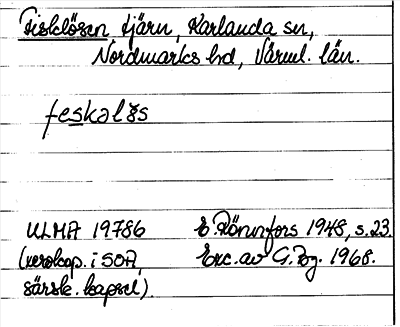 Fisklösen, tjärn, Karlanda sn,
Nordmarks hd, Värml. län.
feskaløs
ULMA 19786 E. Rönnfors 1948, s. 23.
(verokop. i SOA, Exc. av G. Bg. 1968.
särsk. kapsel)